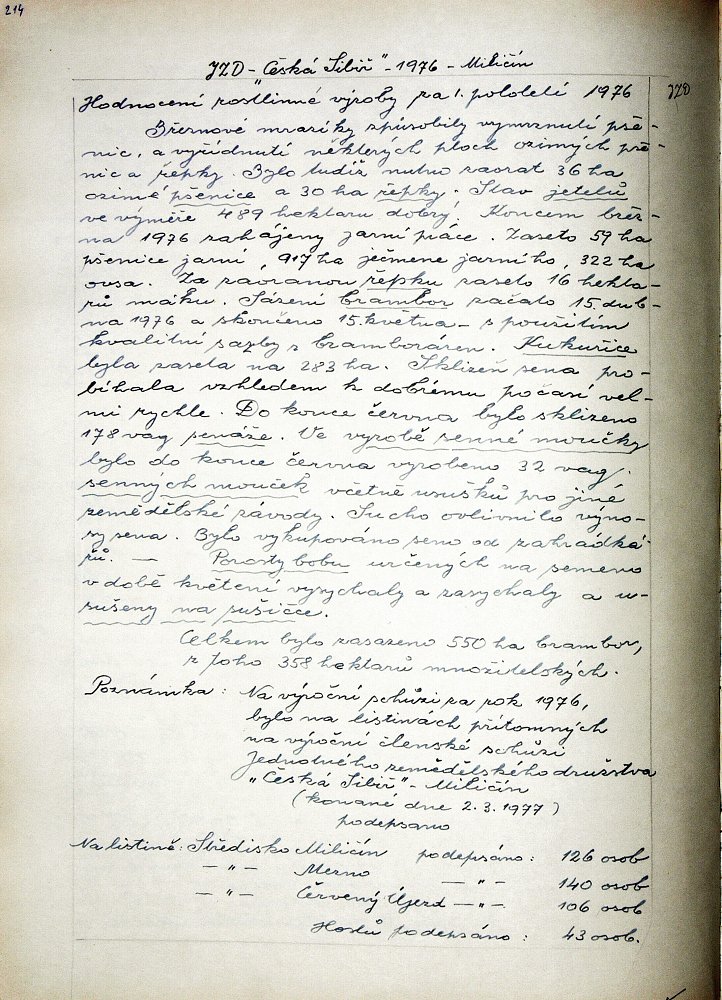 214
JZD - "Česká Sibiř" - 1976 - Miličín
Hodnocení rostlinné výroby za 1. pololetí 1976 JZD
Březnové mrazíky způsobily vymrznutí pše-
nic, a vyřídnutí některých ploch ozimých pše-
nic a řepky. Bylo tudíž nutno zaorat 36 ha
ozimé pšenice a 30 ha řepky. Stav jetelů
ve výměře 489 hektarů dobrý! Koncem břez-
na 1976 zahájeny jarní práce. Zaseto 59 ha
pšenice jarní, 917 ha ječmene jarního, 322 ha
ovsa. Za zaoranou řepku zaseto 16 hekta-
rů máku. Sázení brambor začato 15. dub-
na 1976 a skončeno 15. května - s použitím
kvalitní sazby z bramboráren. Kukuřice
byla zaseta na 283 ha. Sklizeň sena pro-
bíhala vzhledem k dobrému počasí vel-
mi rychle. Do konce června bylo sklizeno
178 vag senáže. Ve výrobě senné moučky
bylo do konce června vyrobeno 32 vag.
senných mouček včetně úsušků pro jiné
zemědělské závody. Sucho ovlivnilo výno-
sy sena. Bylo vykupováno seno od zahrádká-
řů. — Porosty bobu určených na semeno
v době květení vysychaly a zasychaly a u-
sušeny na sušičce.
Celkem bylo zasazeno 550 ha brambor,
z toho 358 hektarů množitelských.
Poznámka: Na výroční schůzi za rok 1976,
bylo na listinách přítomných
na výroční členské schůzi
Jednotného zemědělského družstva
"Česká Sibiř" - Miličín
(konané dne 2. 3. 1977)
podepsáno
Na listině: Středisko Miličín podepsáno: 126 osob
— " — Mezno — " — 140 osob
— " — Červený Újezd — " — 106 osob
Hostů podepsáno: 43 osob.